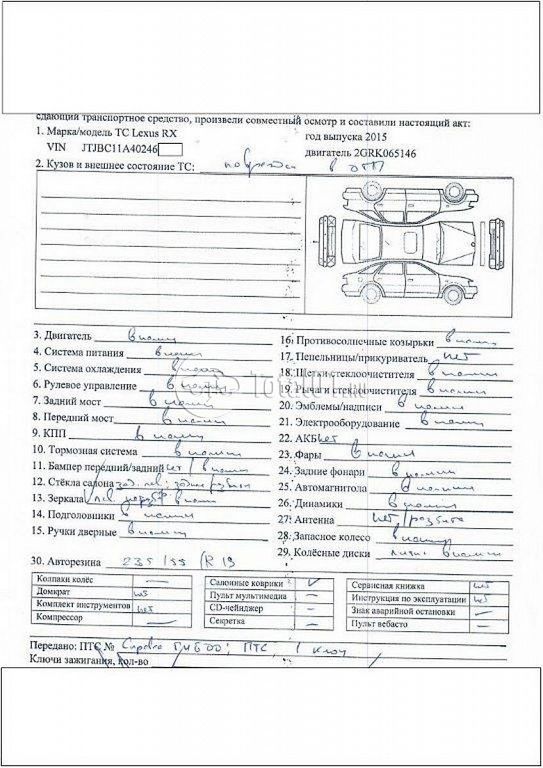 сдающий транспортное средство, произвели совместный осмотр и составили настоящий акт:
1. Марка/модель ТС Lexus RX
год выпуска 2015
VIN JTJBC11A40246
двигатель 2GRK065146
2. Кузов и внешнее состояние ТС: в ДТП
3. Двигатель в налич
4. Система питания в налич
5. Система охлаждения в налич
6. Рулевое управление в налич
7. Задний мост в налич
8. Передний мост в налич
9. КПП в налич
10. Тормозная система в налич
11. Бампер передний/задний нет / в налич
12. Стёкла салона зад. лев.
13. Зеркала в налич
14. Подголовники в налич
15. Ручки дверные в налич
16. Противосолнечные козырьки в налич
17. Пепельницы/прикуриватель нет
18. Щетки стеклоочистителя в налич
19. Рычаги стеклоочистителя в налич
20. Эмблемы/надписи в налич
21. Электрооборудование в налич
22. АКБ нет
23. Фары в налич
24. Задние фонари в налич
25. Автомагнитола в налич
26. Динамики в налич
27. Антенна нет/разбита
28. Запасное колесо в налич
29. Колёсные диски литые в налич
30. Авторезина 235/55/R19
Колпаки колёс —
Домкрат нет
Комплект инструментов нет
Компрессор —
Салонные коврики ✓
Пульт мультимедиа –
CD-чейнджер –
Секретка –
Сервисная книжка нет
Инструкция по эксплуатации нет
Знак аварийной остановки –
Пульт вебасто –
Передано: ПТС № ПТС, 1 ключ
Ключи зажигания, кол-во
Total01.ru